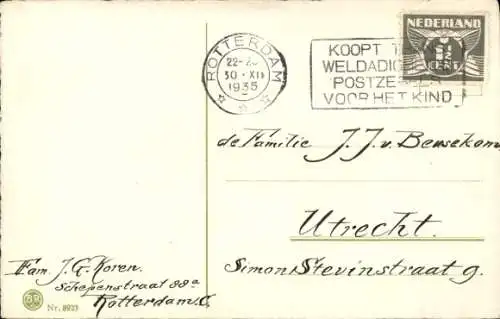 ROTTERDAM
22-
30·XII
1935
KOOPT
WELDADIG
POSTZE
VOOR HET KIND
NEDERLAND
1½
CENT
de Familie J. J. v. Beusekom
Utrecht.
Simon Stevinstraat 9.
Fam. J. G. Koren.
Schepenstraat 88a
Rotterdam. C.
Nr. 8923